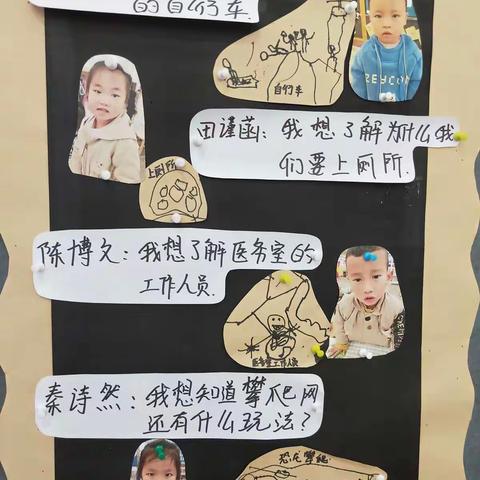 的自行车
自行车
ZEYCON
田谨菡：我想了解为什么我
们要上厕所.
上厕所
陈博文：我想了解医务室的
工作人员.
医务室工作人员
秦诗然：我想知道攀爬网
还有什么玩法？
恐龙攀爬